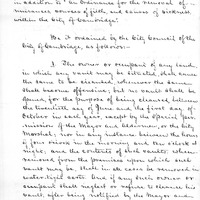 in addition to "An Ordinance for the removal of
nuisances sources of filth, and causes of sickness,
within the City of Cambridge".
Be it ordained by the City Council of the
City of Cambridge, as follows:—
1. The owner or occupant of any land,
in which any vault may be situated shall cause
the same to be cleansed, whenever the same
shall become offensive; but no vault shall be
opened, for the purpose of being cleansed, between
the day of June and the first day of
October in each year, except by the special per-
mission of the Mayor and Aldermen, or the City
Marshal; nor in any instance between the hours
of four in the morning and ten o'clock at
night; and the contents of such vaults when
removed from the premises upon which such
vault may be, shall in all cases be removed in
water tight carts. And if any such owner or
occupant shall neglect or refuse to cleanse his
vault, after being notified by the Mayor and